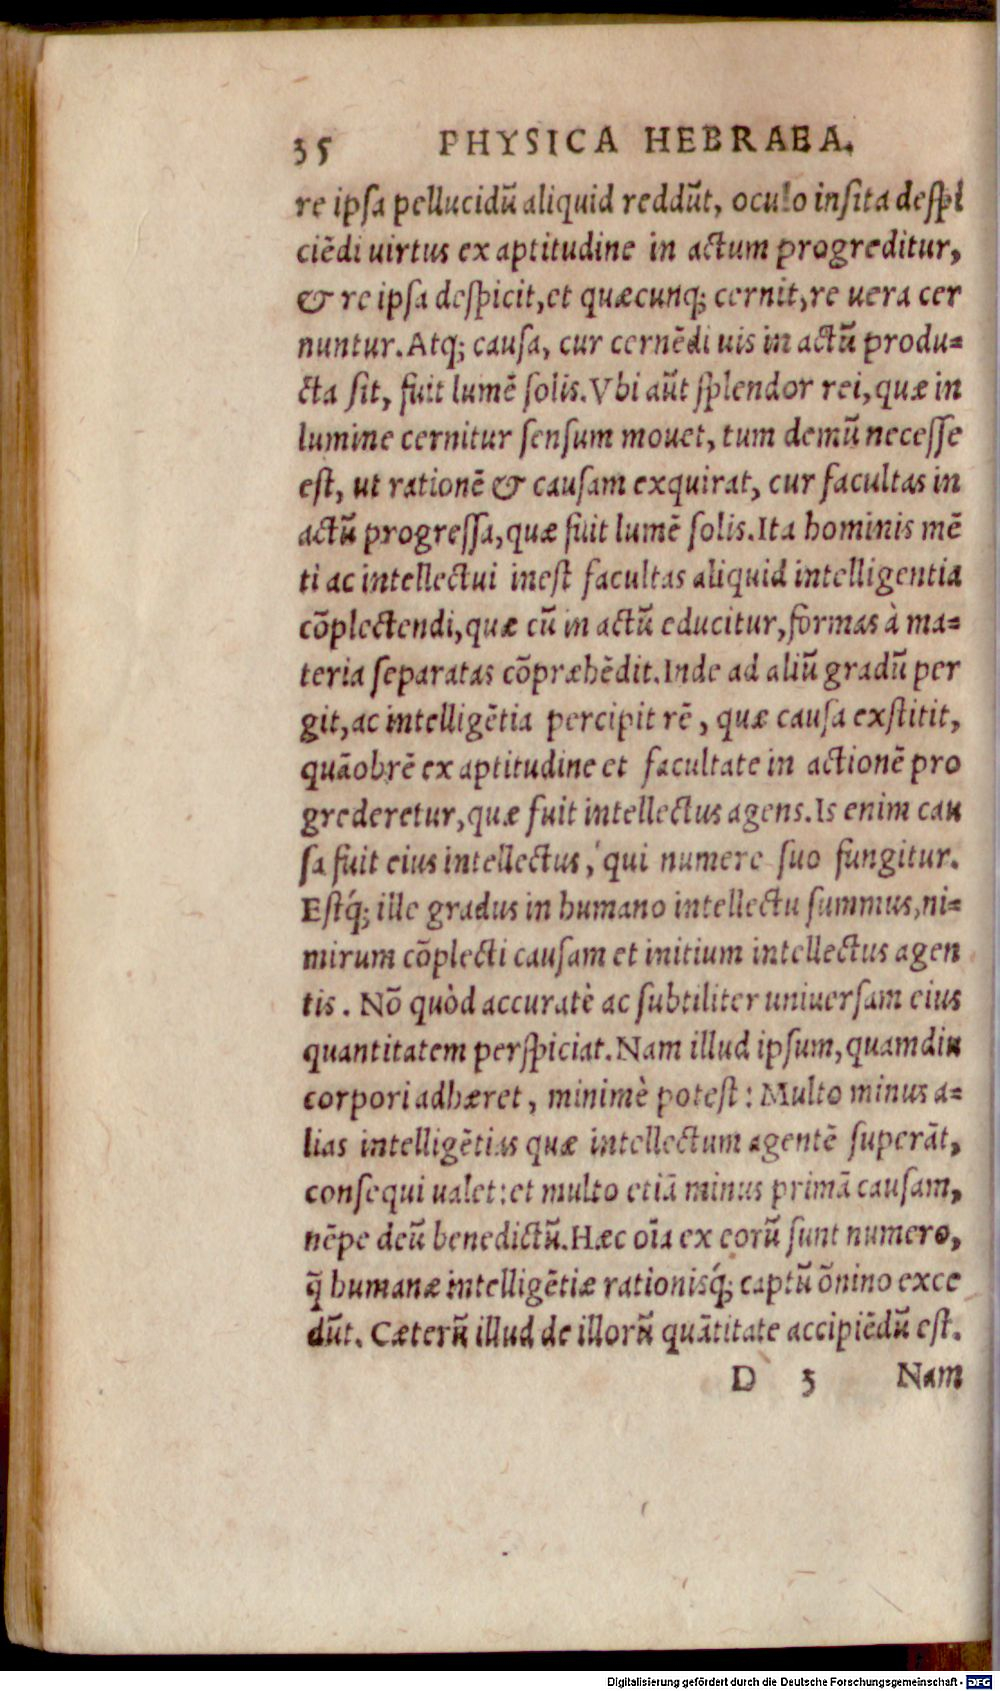 35 PHYSICA HEBRAEA.
re ipsa pellucidũ aliquid reddũt, oculo insita despi
ciẽdi uirtus ex aptitudine in actum progreditur,
& re ipsa despicit, et quæcunq; cernit, re uera cer
nuntur. Atq; causa, cur cernẽdi uis in actũ produ=
cta sit, fuit lumẽ solis. Vbi aũt splendor rei, quæ in
lumine cernitur sensum mouet, tum demũ necesse
est, ut rationẽ & causam exquirat, cur facultas in
actũ progressa, quæ fuit lumẽ solis. Ita hominis mẽ
ti ac intellectui inest facultas aliquid intelligentia
cõplectendi, quæ cũ in actũ educitur, formas à ma=
teria separatas cõpræhẽdit. Inde ad aliũ gradũ per
git, ac intelligẽtia percipit rẽ, quæ causa exstitit,
quãobrẽ ex aptitudine et facultate in actionẽ pro
grederetur, quæ fuit intellectus agens. Is enim cau
sa fuit eius intellectus, qui numere suo fungitur.
Estq́; ille gradus in humano intellectu summus, ni=
mirum cõplecti causam et initium intellectus agen
tis. Nõ quòd accuratè ac subtiliter uniuersam eius
quantitatem perspiciat. Nam illud ipsum, quamdiu
corpori adhæret, minimè potest: Multo minus a=
lias intelligẽtias quæ intellectum agentẽ superãt,
consequi ualet: et multo etiã minus primã causam,
nẽpe deũ benedictũ. Hæc oĩa ex eorũ sunt numero,
q̃ humanæ intelligẽtiæ rationisq́; captũ õnino exce
dũt. Cæterũ illud de illorũ quãtitate accipiẽdũ est.
D 3 Nam
Digitalisierung gefördert durch die Deutsche Forschungsgemeinschaft - DFG